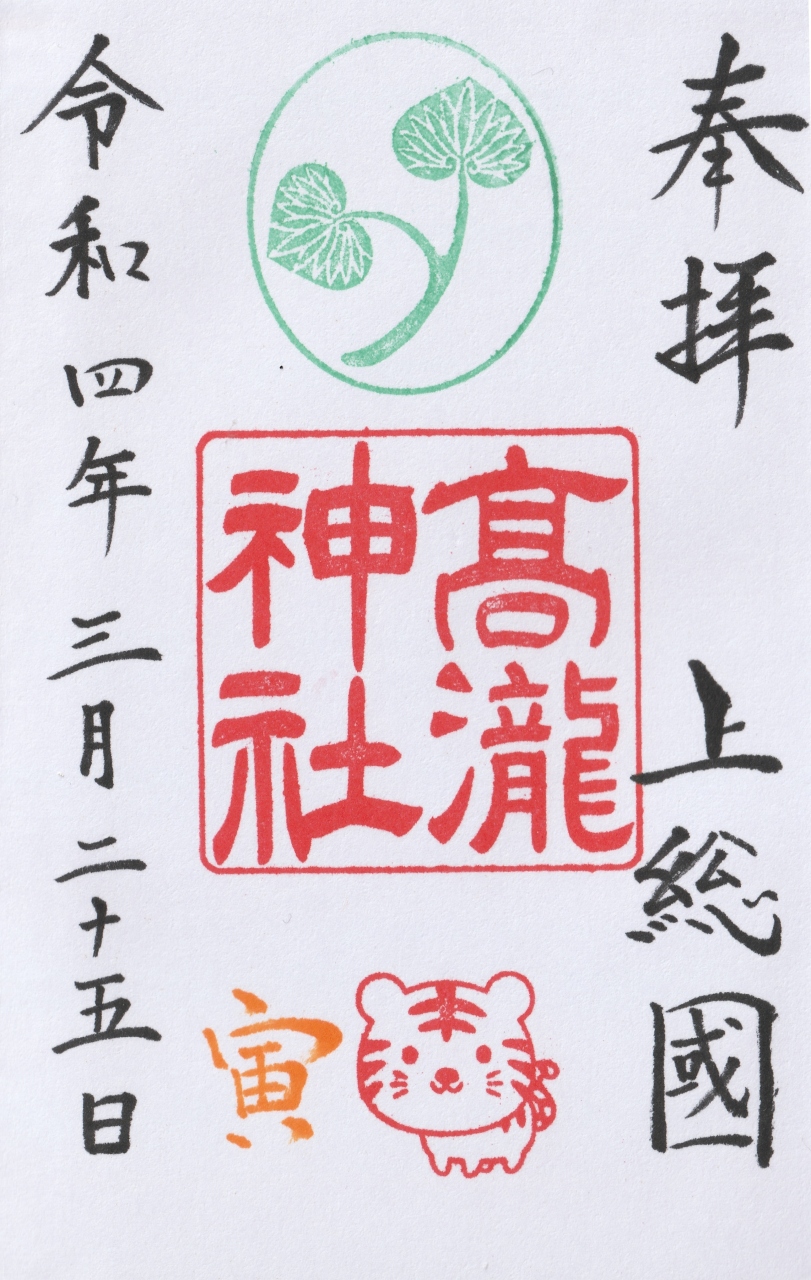 奉拝
上総國
髙瀧
神社
寅
令和四年三月二十五日